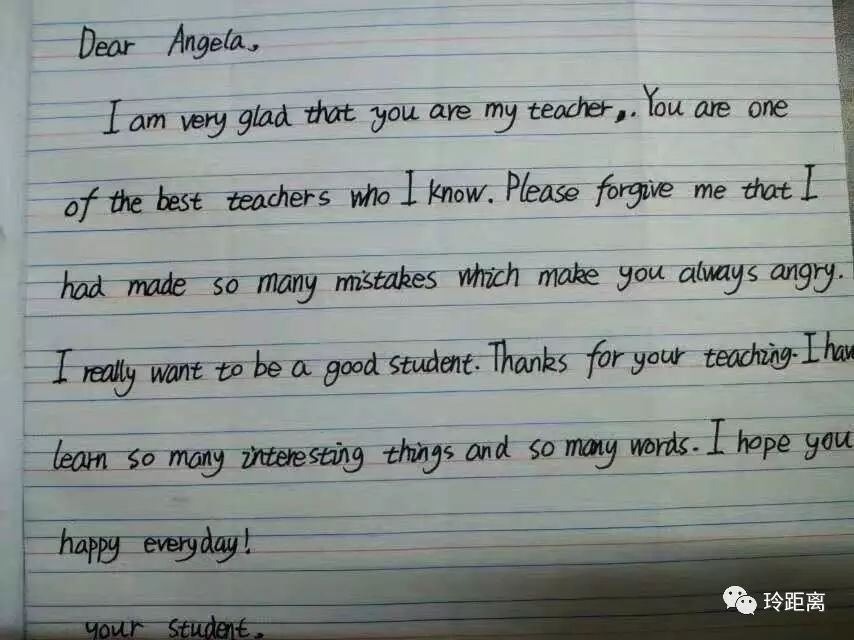 Dear Angela,
I am very glad that you are my teacher,. You are one
of the best teachers who I know. Please forgive me that I
had made so many mistakes which make you always angry.
I really want to be a good student. Thanks for your teaching. I hav
learn so many interesting things and so many words. I hope you
happy everyday!
your student.
玲距离